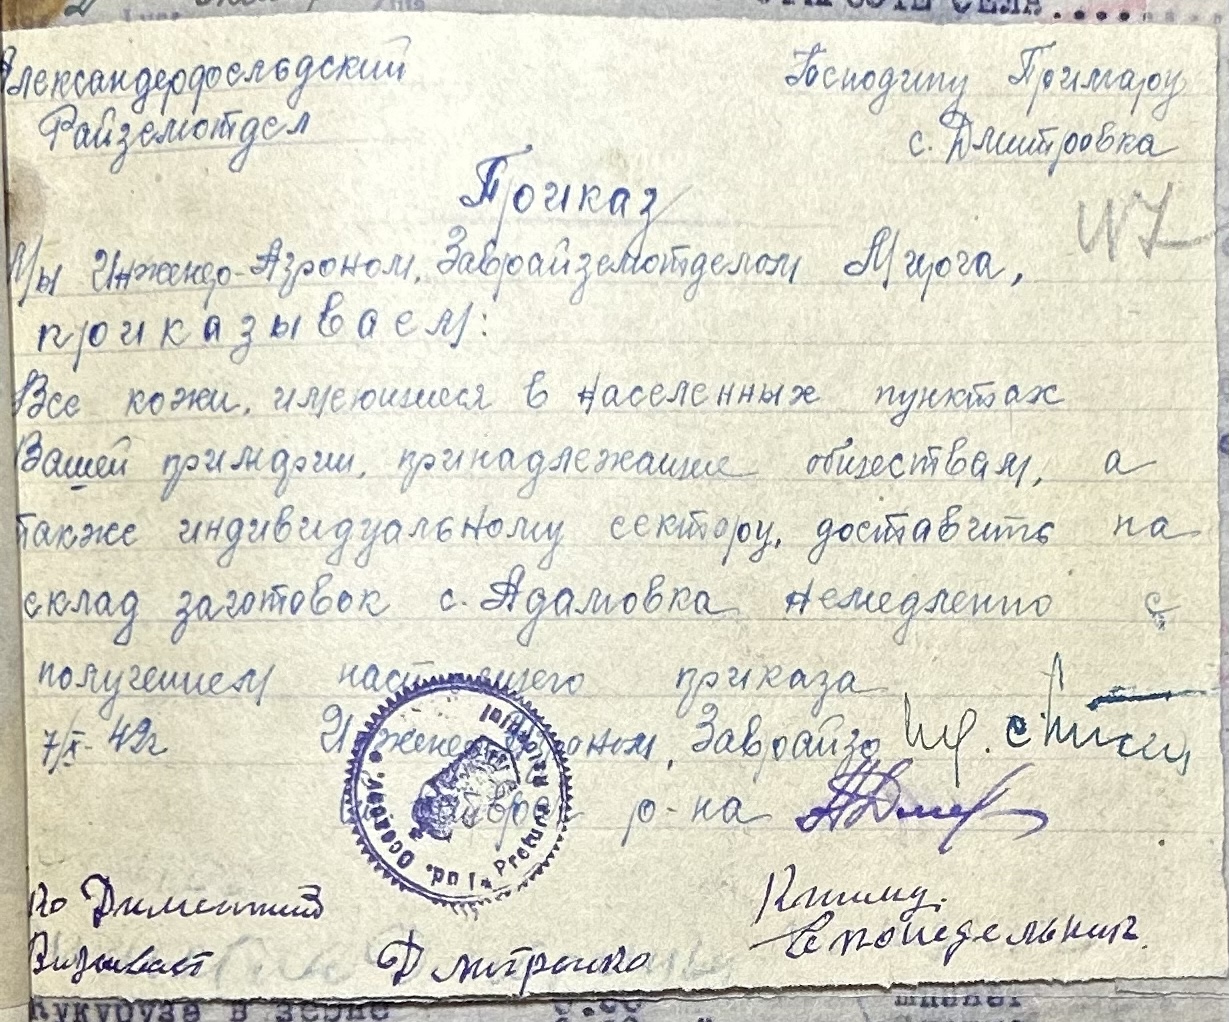 СТАРОСТЕ СЕЛА
Александерфельдский
Райземотдел
Господину Примару
с. Дмитровка
Приказ
Мы Инженер-Агроном, Заврайземотделом Мирога,
приказываем:
Все кожи, имеющиеся в населенных пунктах
Вашей примарии, принадлежащие обществам, а
также индивидуальному сектору, доставить на
склад заготовок с. Адамовка немедленно с
получением настоящего приказа
7/X-42г Инженер Агроном, Заврайзо
р-на
Дмитренко
К тиму.
понедельник
Pretura Raionului Jud. Oceacov
кукурузе в зерне